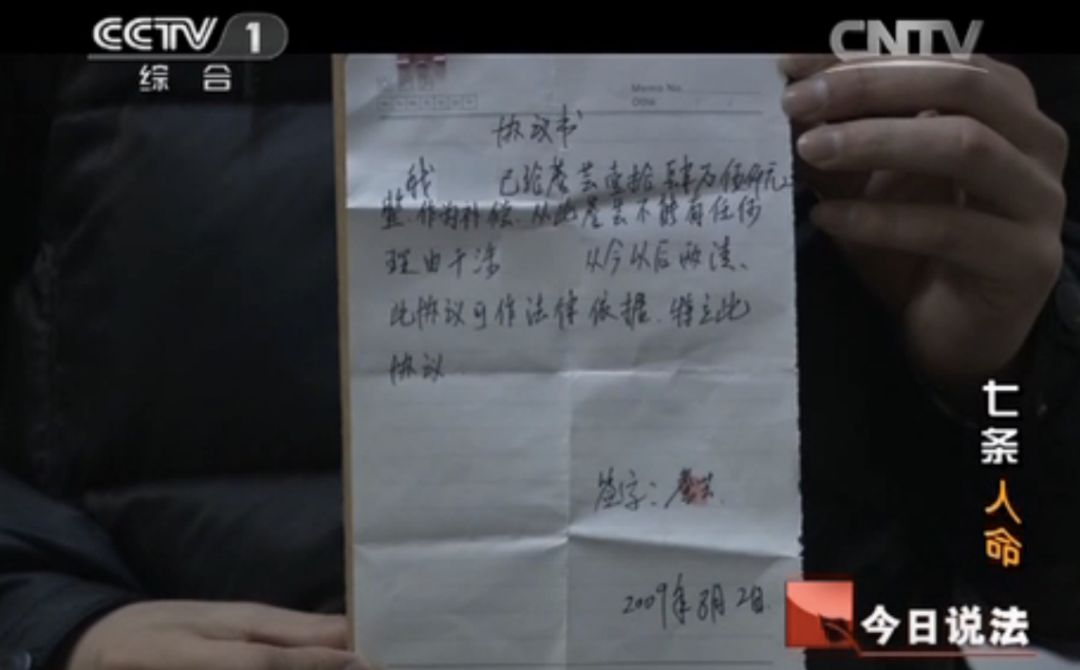 CCTV 1
综合
CNTV
Memo No.
Date / /
协议书
我 已给 芸壹拾肆万伍仟元
整作为补偿.从此 芸不能有任何
理由干涉 从今以后两清、
此协议可作法律依据.特立此
协议.
签字: 芸.
2009年8月2日.
七条人命
今日说法